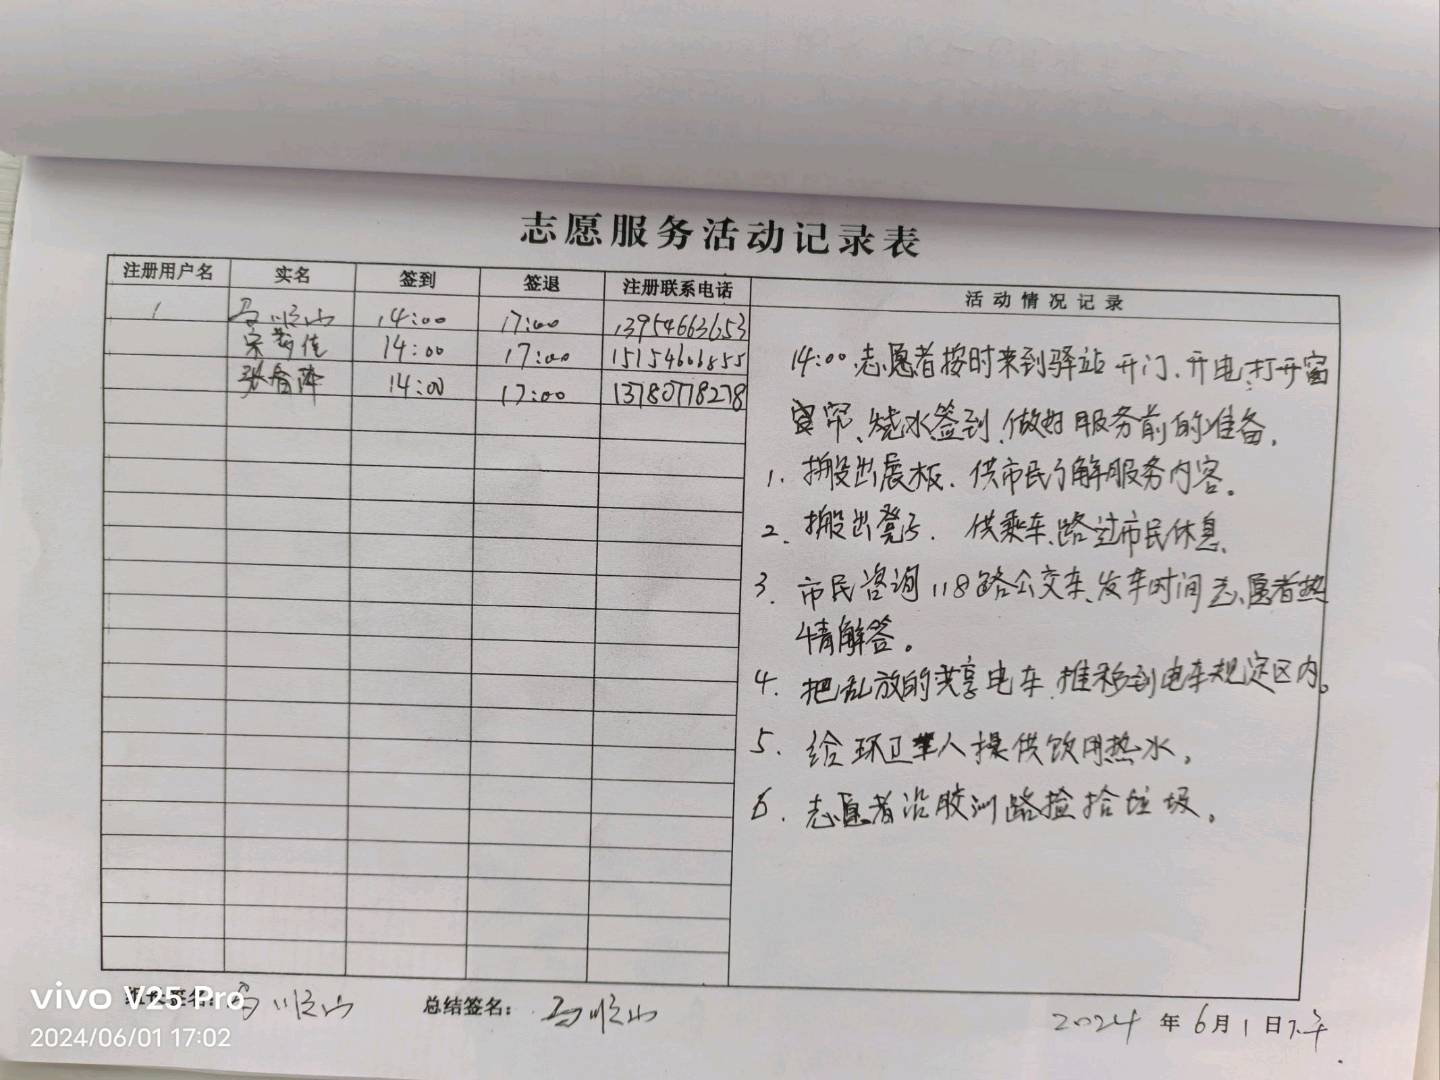 志愿服务活动记录表
注册用户名 实名 签到 签退 注册联系电话 活动情况记录
马顺山 14:00 17:00 13954663653
宋 佳 14:00 17:00 15154606855
张 萍 14:00 17:00 13780778278
14:00.志愿者按时来到驿站开门、开电、打开窗
窗帘、烧水签到、做好服务前的准备,
1. 搬出展板、供市民了解服务内容。
2. 搬出凳子. 供乘车、路过市民休息、
3. 市民咨询118路公交车、发车时间志愿者热
情解答。
4. 把乱放的共享电车、推移到电车规定区内。
5. 给环卫工人提供饮用热水,
6. 志愿者沿胶州路捡拾垃圾。
签名: 马顺山 总结签名: 马顺山
2024年6月1日下午
vivo V25 Pro
2024/06/01 17:02